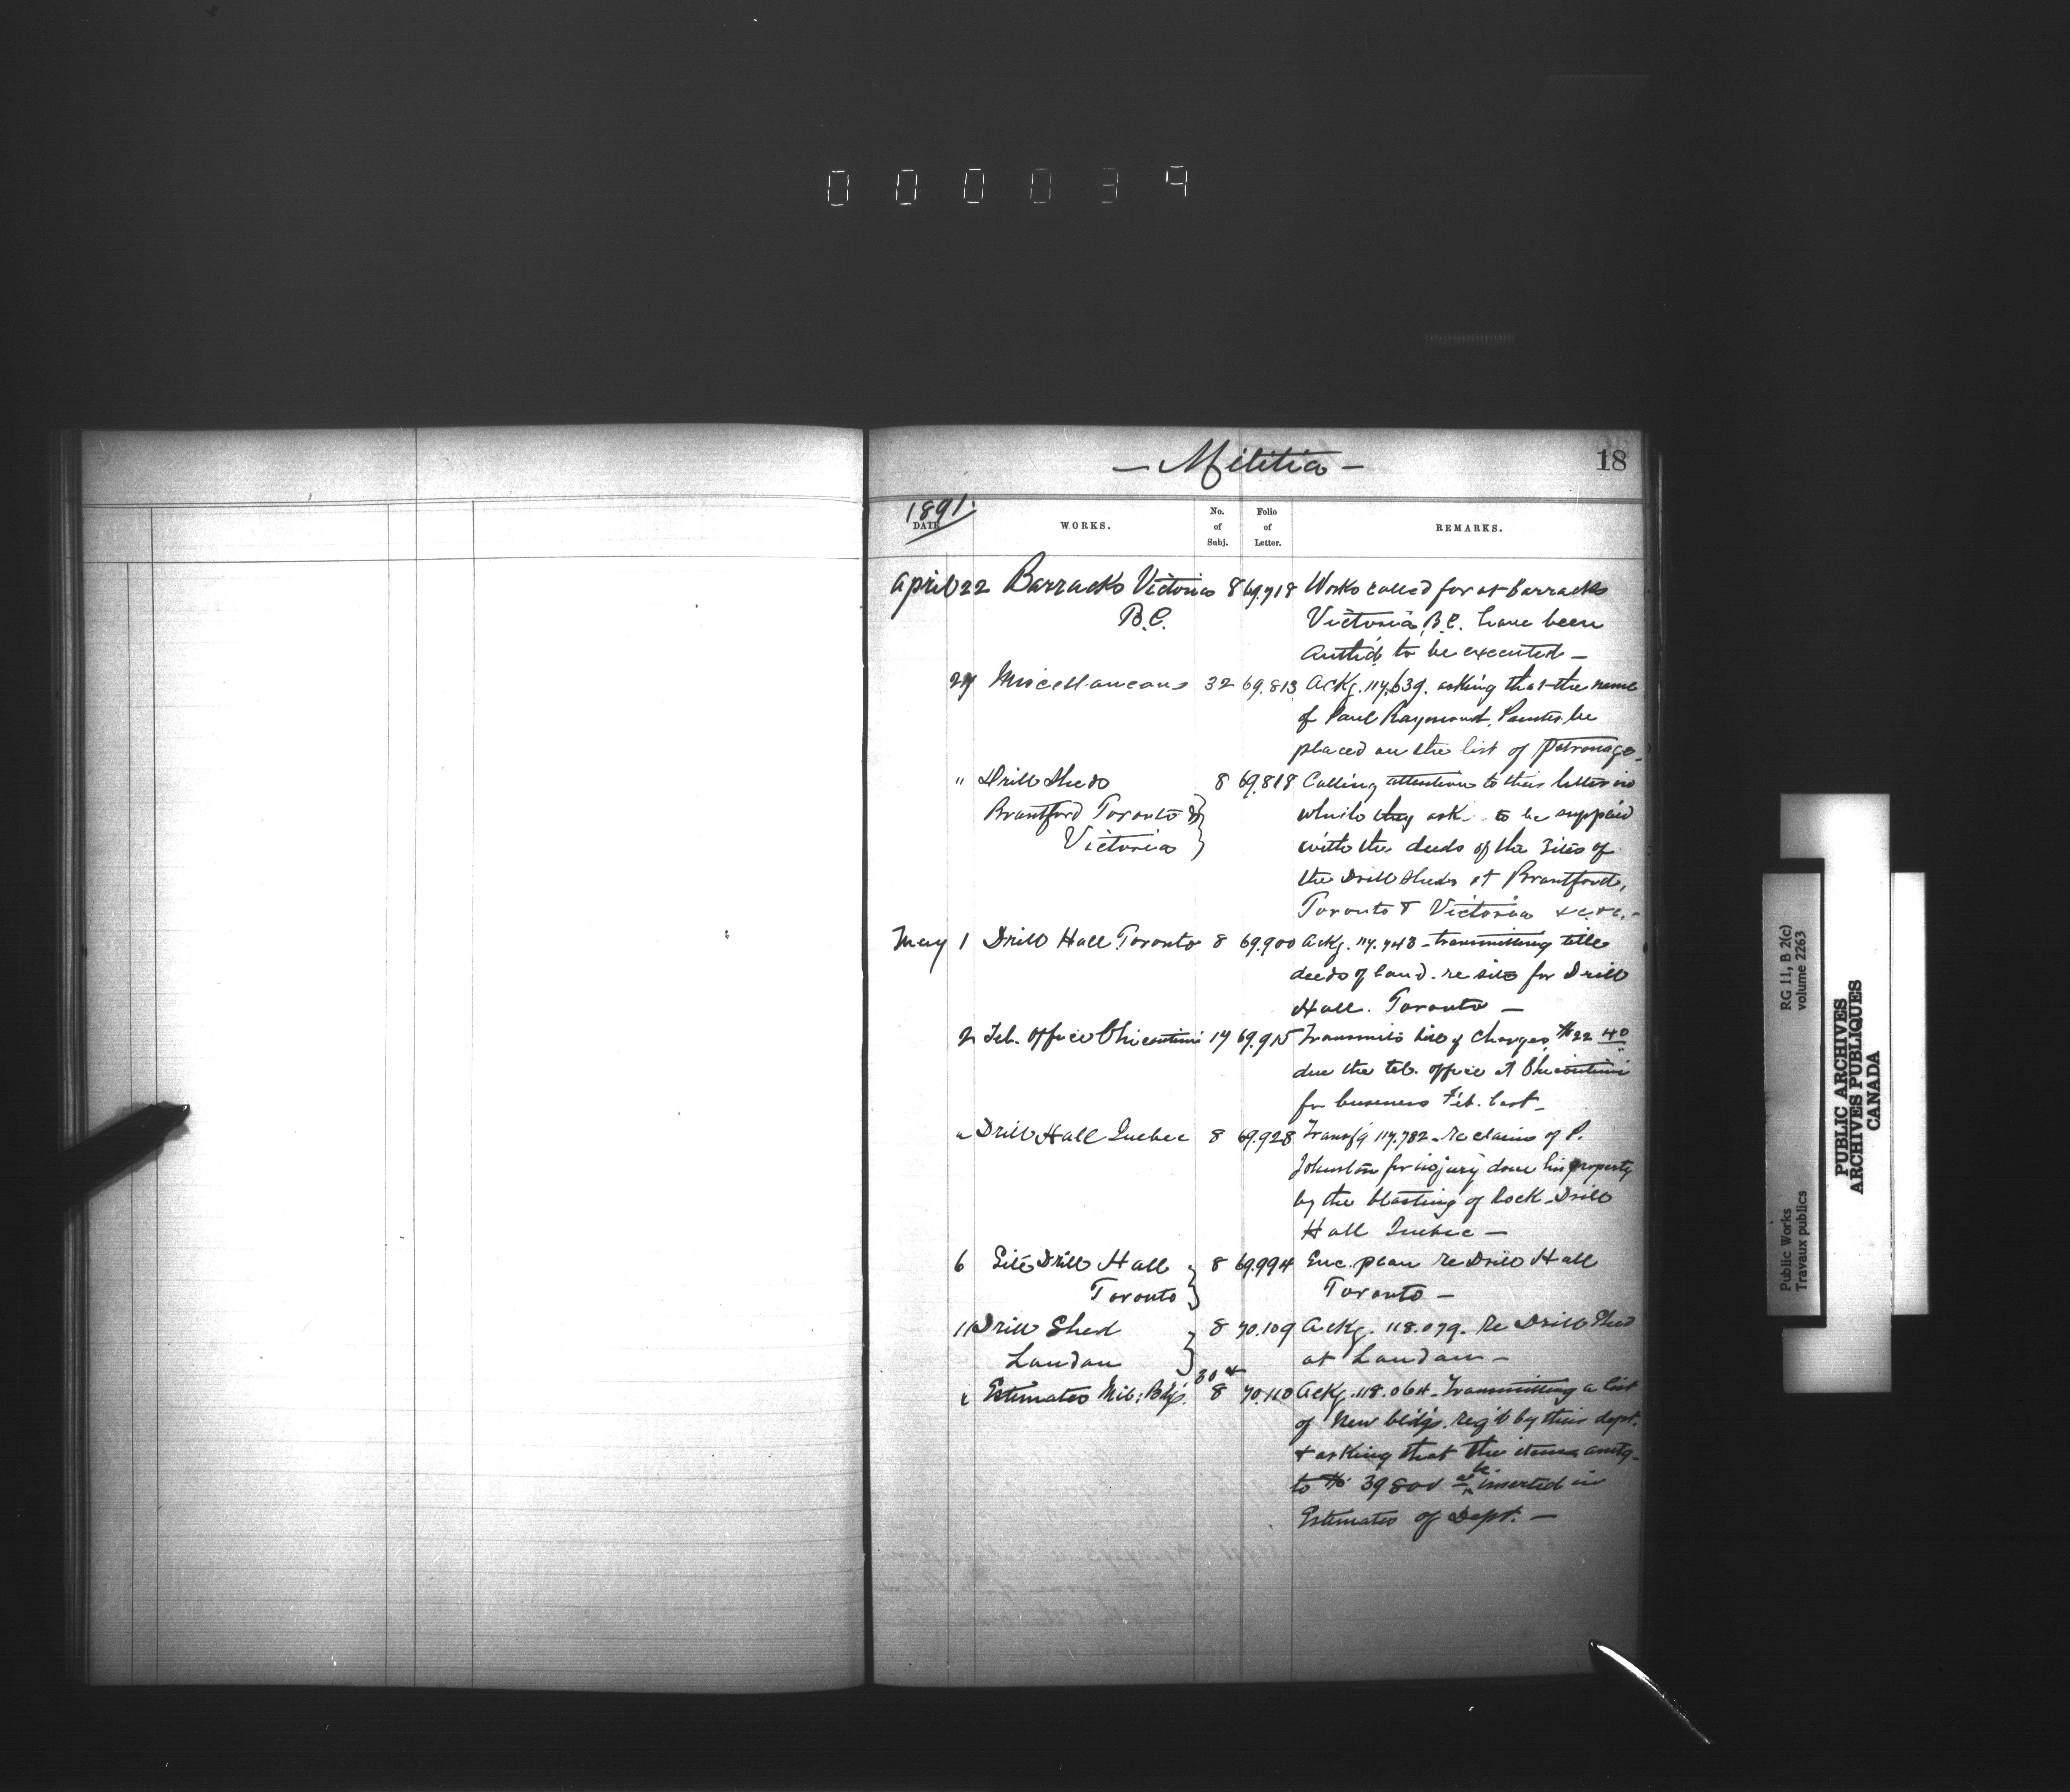 000039
— Militia —
18
1891.
DATE
WORKS.
No. of Subj.
Folio of Letter.
REMARKS.
April 22 Barracks Victoria 8 69.718 Works called for at Barracks
B.C. Victoria, B.C. have been
Authd. to be executed —
27 Miscellaneous 32 69.813 Ackg. 117,639. asking that the name
of Paul Raymond, Painter be
placed on the list of Patronage.
" Drill Sheds 8 69.818 Calling attention to their letter in
Brantford Toronto & which they ask to be supplied
Victoria with the deeds of the sites of
the Drill Sheds at Brantford,
Toronto & Victoria &c. &c. —
May 1 Drill Hall Toronto 8 69.900 Ackg. 117.743 - transmitting title
deeds of land re site for Drill
Hall. Toronto —
2 Tel. Office Chicoutimi 17 69.915 Transmits bill of charges $22 40
due the tel. office at Chicoutimi
for business Feb. last —
" Drill Hall Quebec 8 69.928 Transfg 117.782 - re claim of P.
Johnston for injury done his property
by the blasting of Rock - Drill
Hall Quebec —
6 Site Drill Hall 8 69.994 Enc. plan re Drill Hall
Toronto Toronto —
11 Drill Shed 8 70.109 Ackg. 118.079. Re Drill Shed
London at London —
" Estimates Mil: Bldgs. 30 & 8 70.110 Ackg. 118.064 - Transmitting a list
of New bldgs. reqd by their dept.
& asking that the items amtg.
to $ 39800 be inserted in
Estimates of Dept. —
Public Works
Travaux publics
RG 11, B 2(c)
volume 2263
PUBLIC ARCHIVES
ARCHIVES PUBLIQUES
CANADA